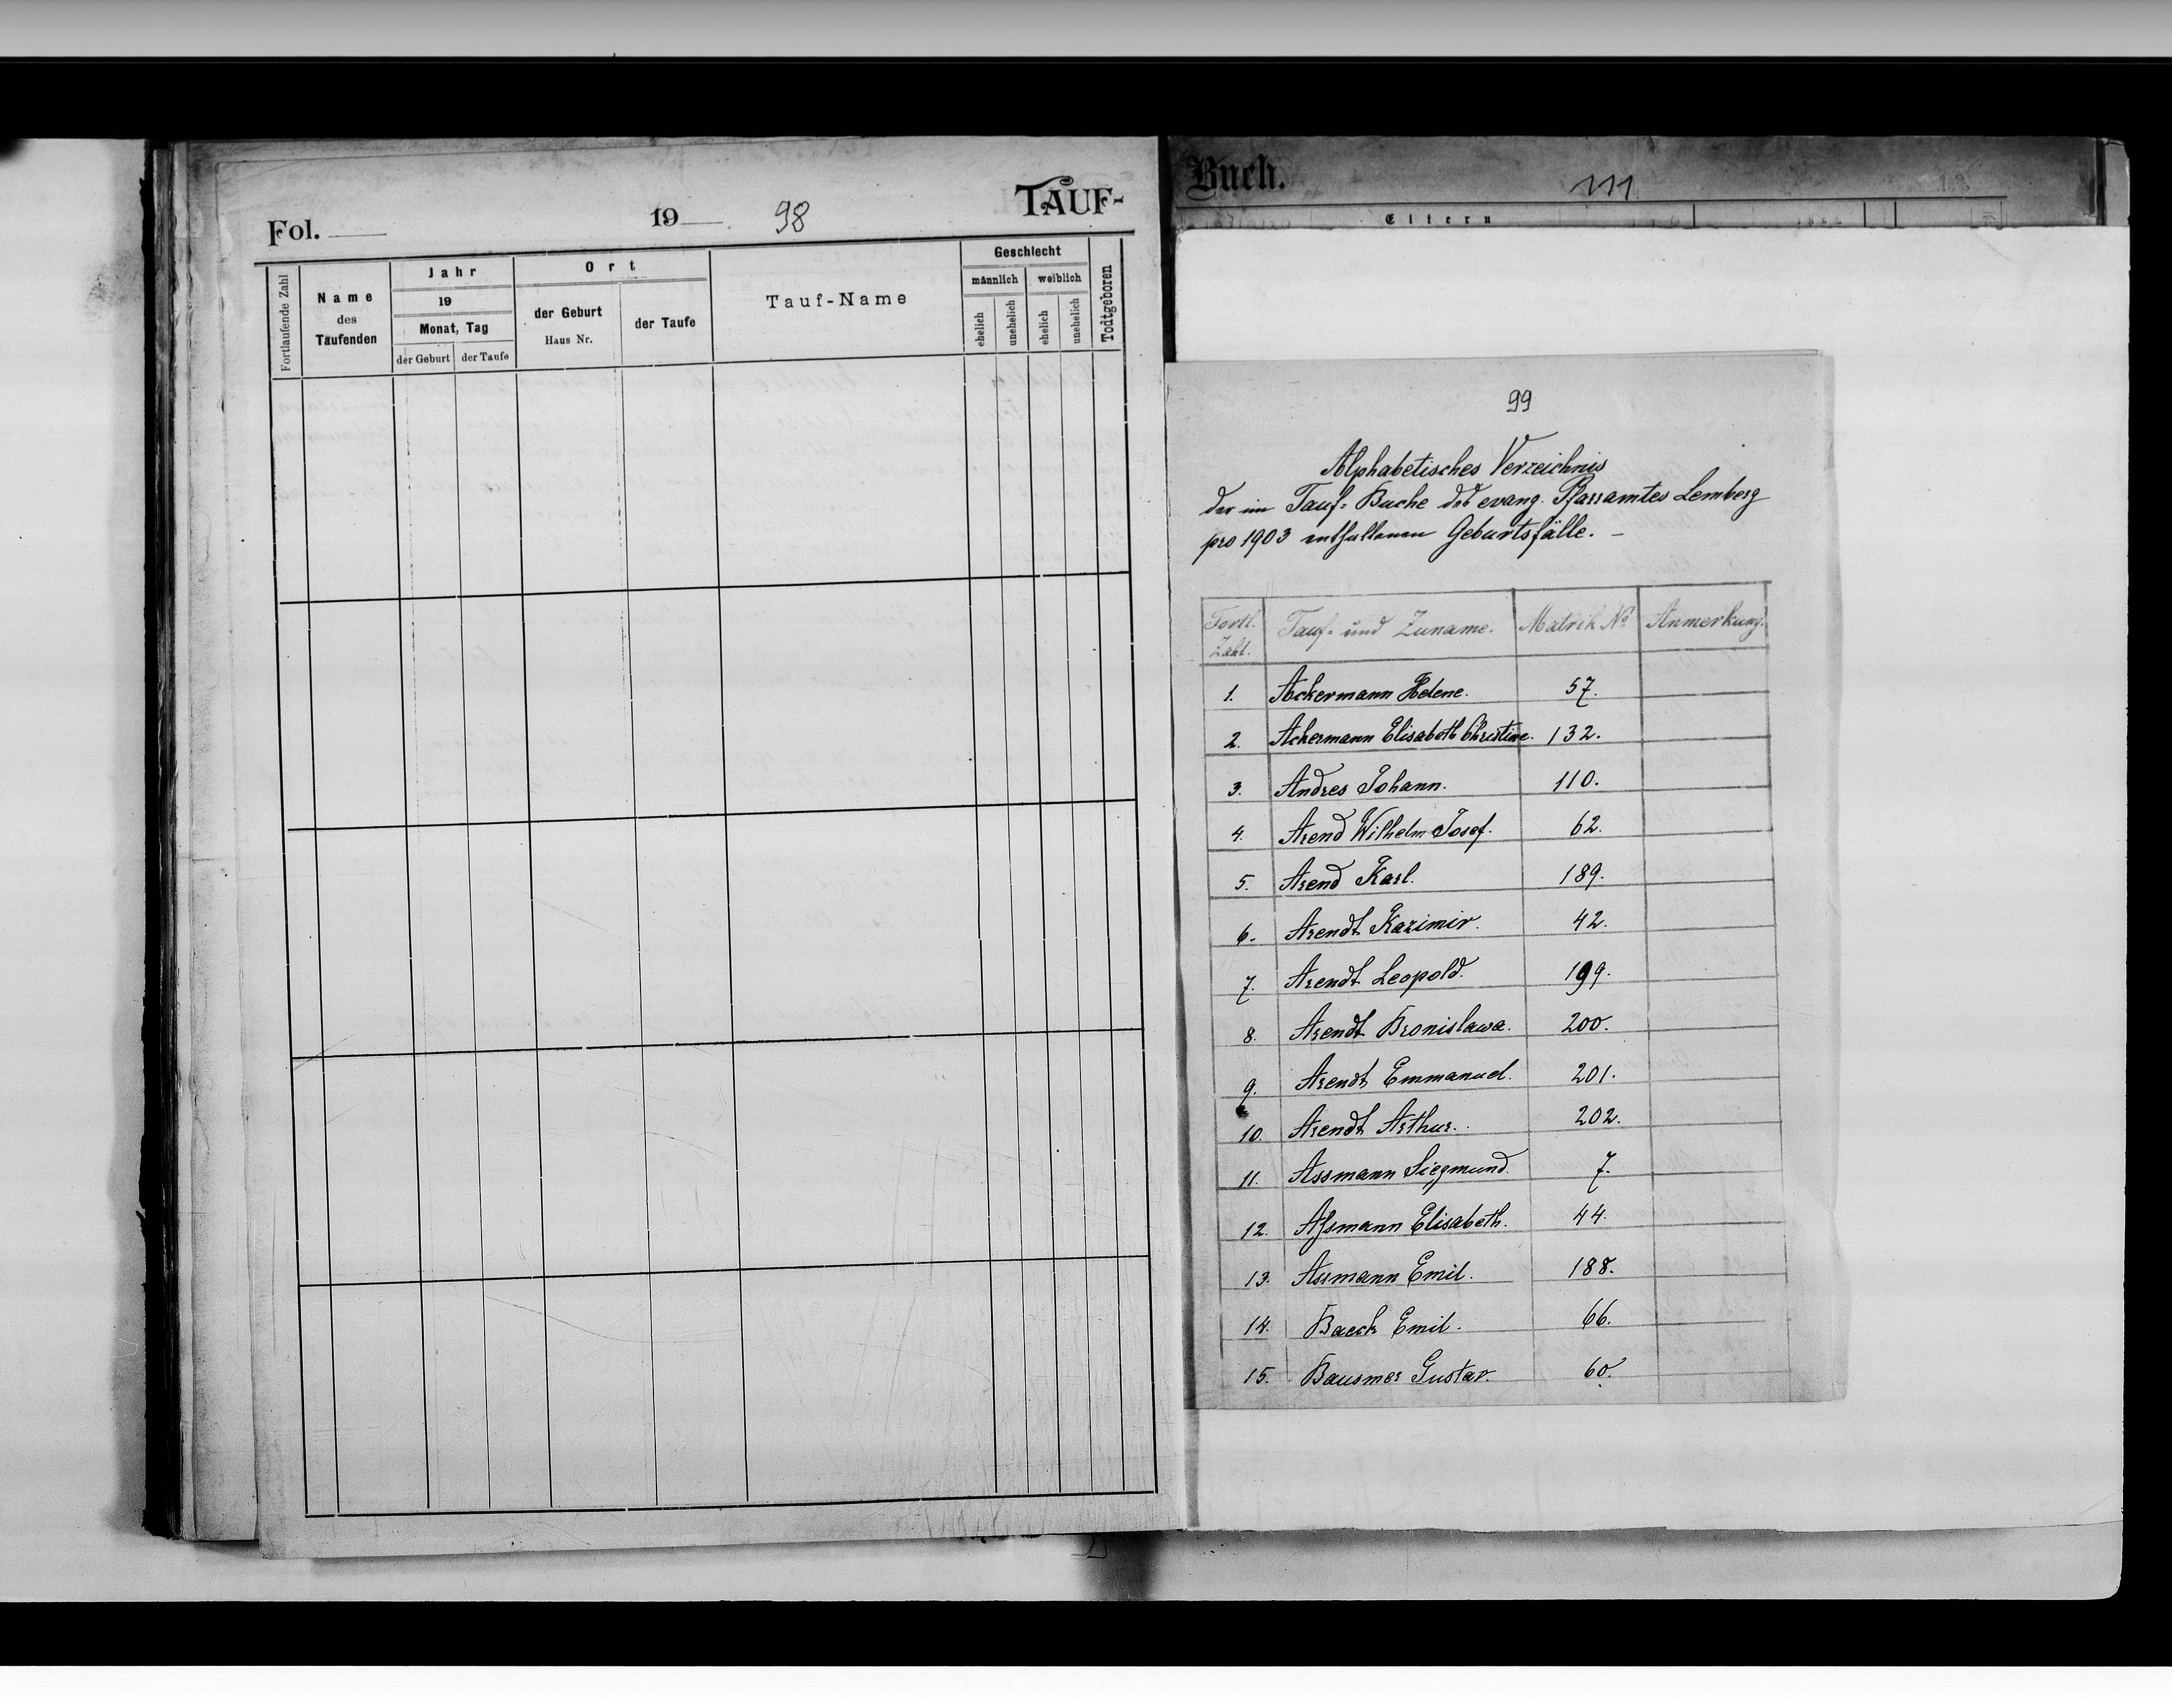 Fol. 19 98 TAUF-
Fortlaufende Zahl
Name
des
Taufenden
Jahr
19
Monat, Tag
der Geburt der Taufe
Ort
der Geburt
Haus Nr.
der Taufe
Tauf-Name
Geschlecht
männlich weiblich
ehelich unehelich ehelich unehelich
Todtgeboren
Buch. 111
Eltern
99
Alphabetisches Verzeichnis
der im Tauf-Buche des evang. Pfarramtes Lemberg
pro 1903 enthaltenen Geburtsfälle. –
Fortl. Zahl. Tauf- und Zuname. Matrik No Anmerkung.
1. Ackermann Helene. 57.
2. Ackermann Elisabeth Christine. 132.
3. Andres Johann. 110.
4. Arend Wilhelm Josef. 62.
5. Arend Karl. 189.
6. Arendt Kazimir. 42.
7. Arendt Leopold. 199.
8. Arendt Bronislawa. 200.
9. Arendt Emmanuel. 201.
10. Arendt Arthur. 202.
11. Assmann Siegmund. 7.
12. Aſsmann Elisabeth. 44.
13. Assmann Emil. 188.
14. Baeck Emil. 66.
15. Bausmer Gustav. 60.